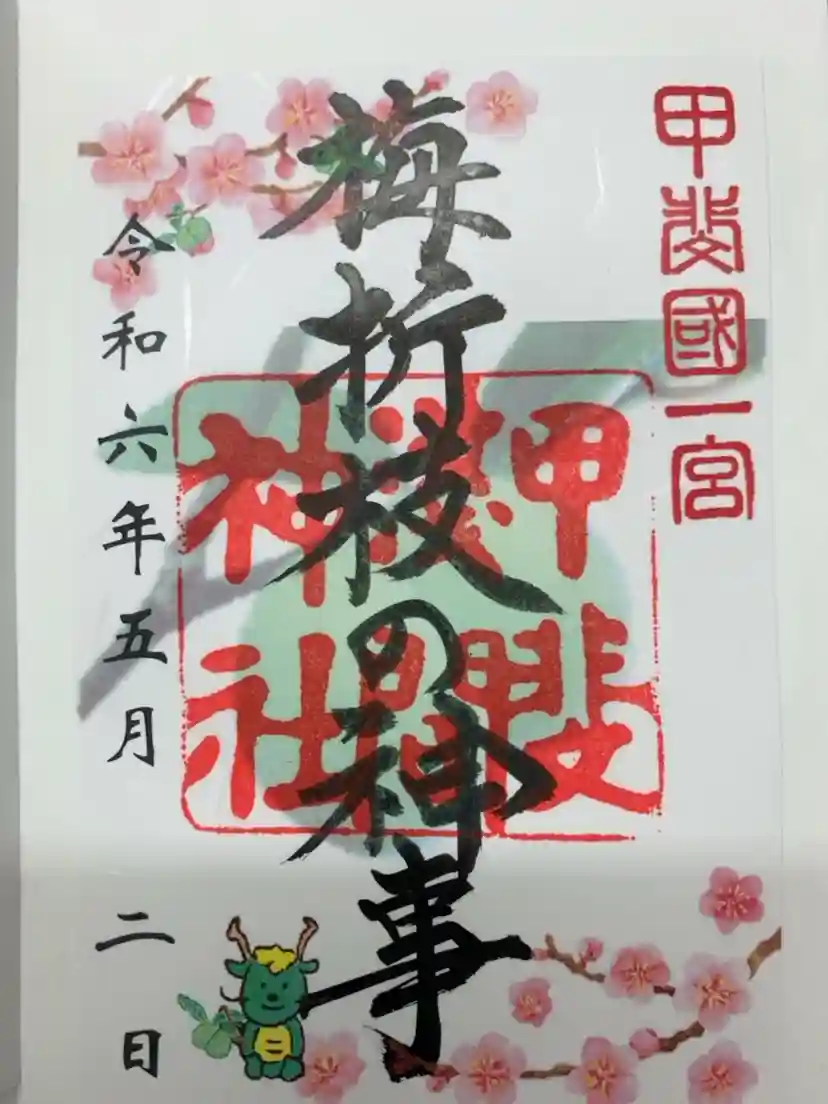 甲斐國一宮
梅折枝の神事
甲斐
淺間
神社
令和六年五月二日